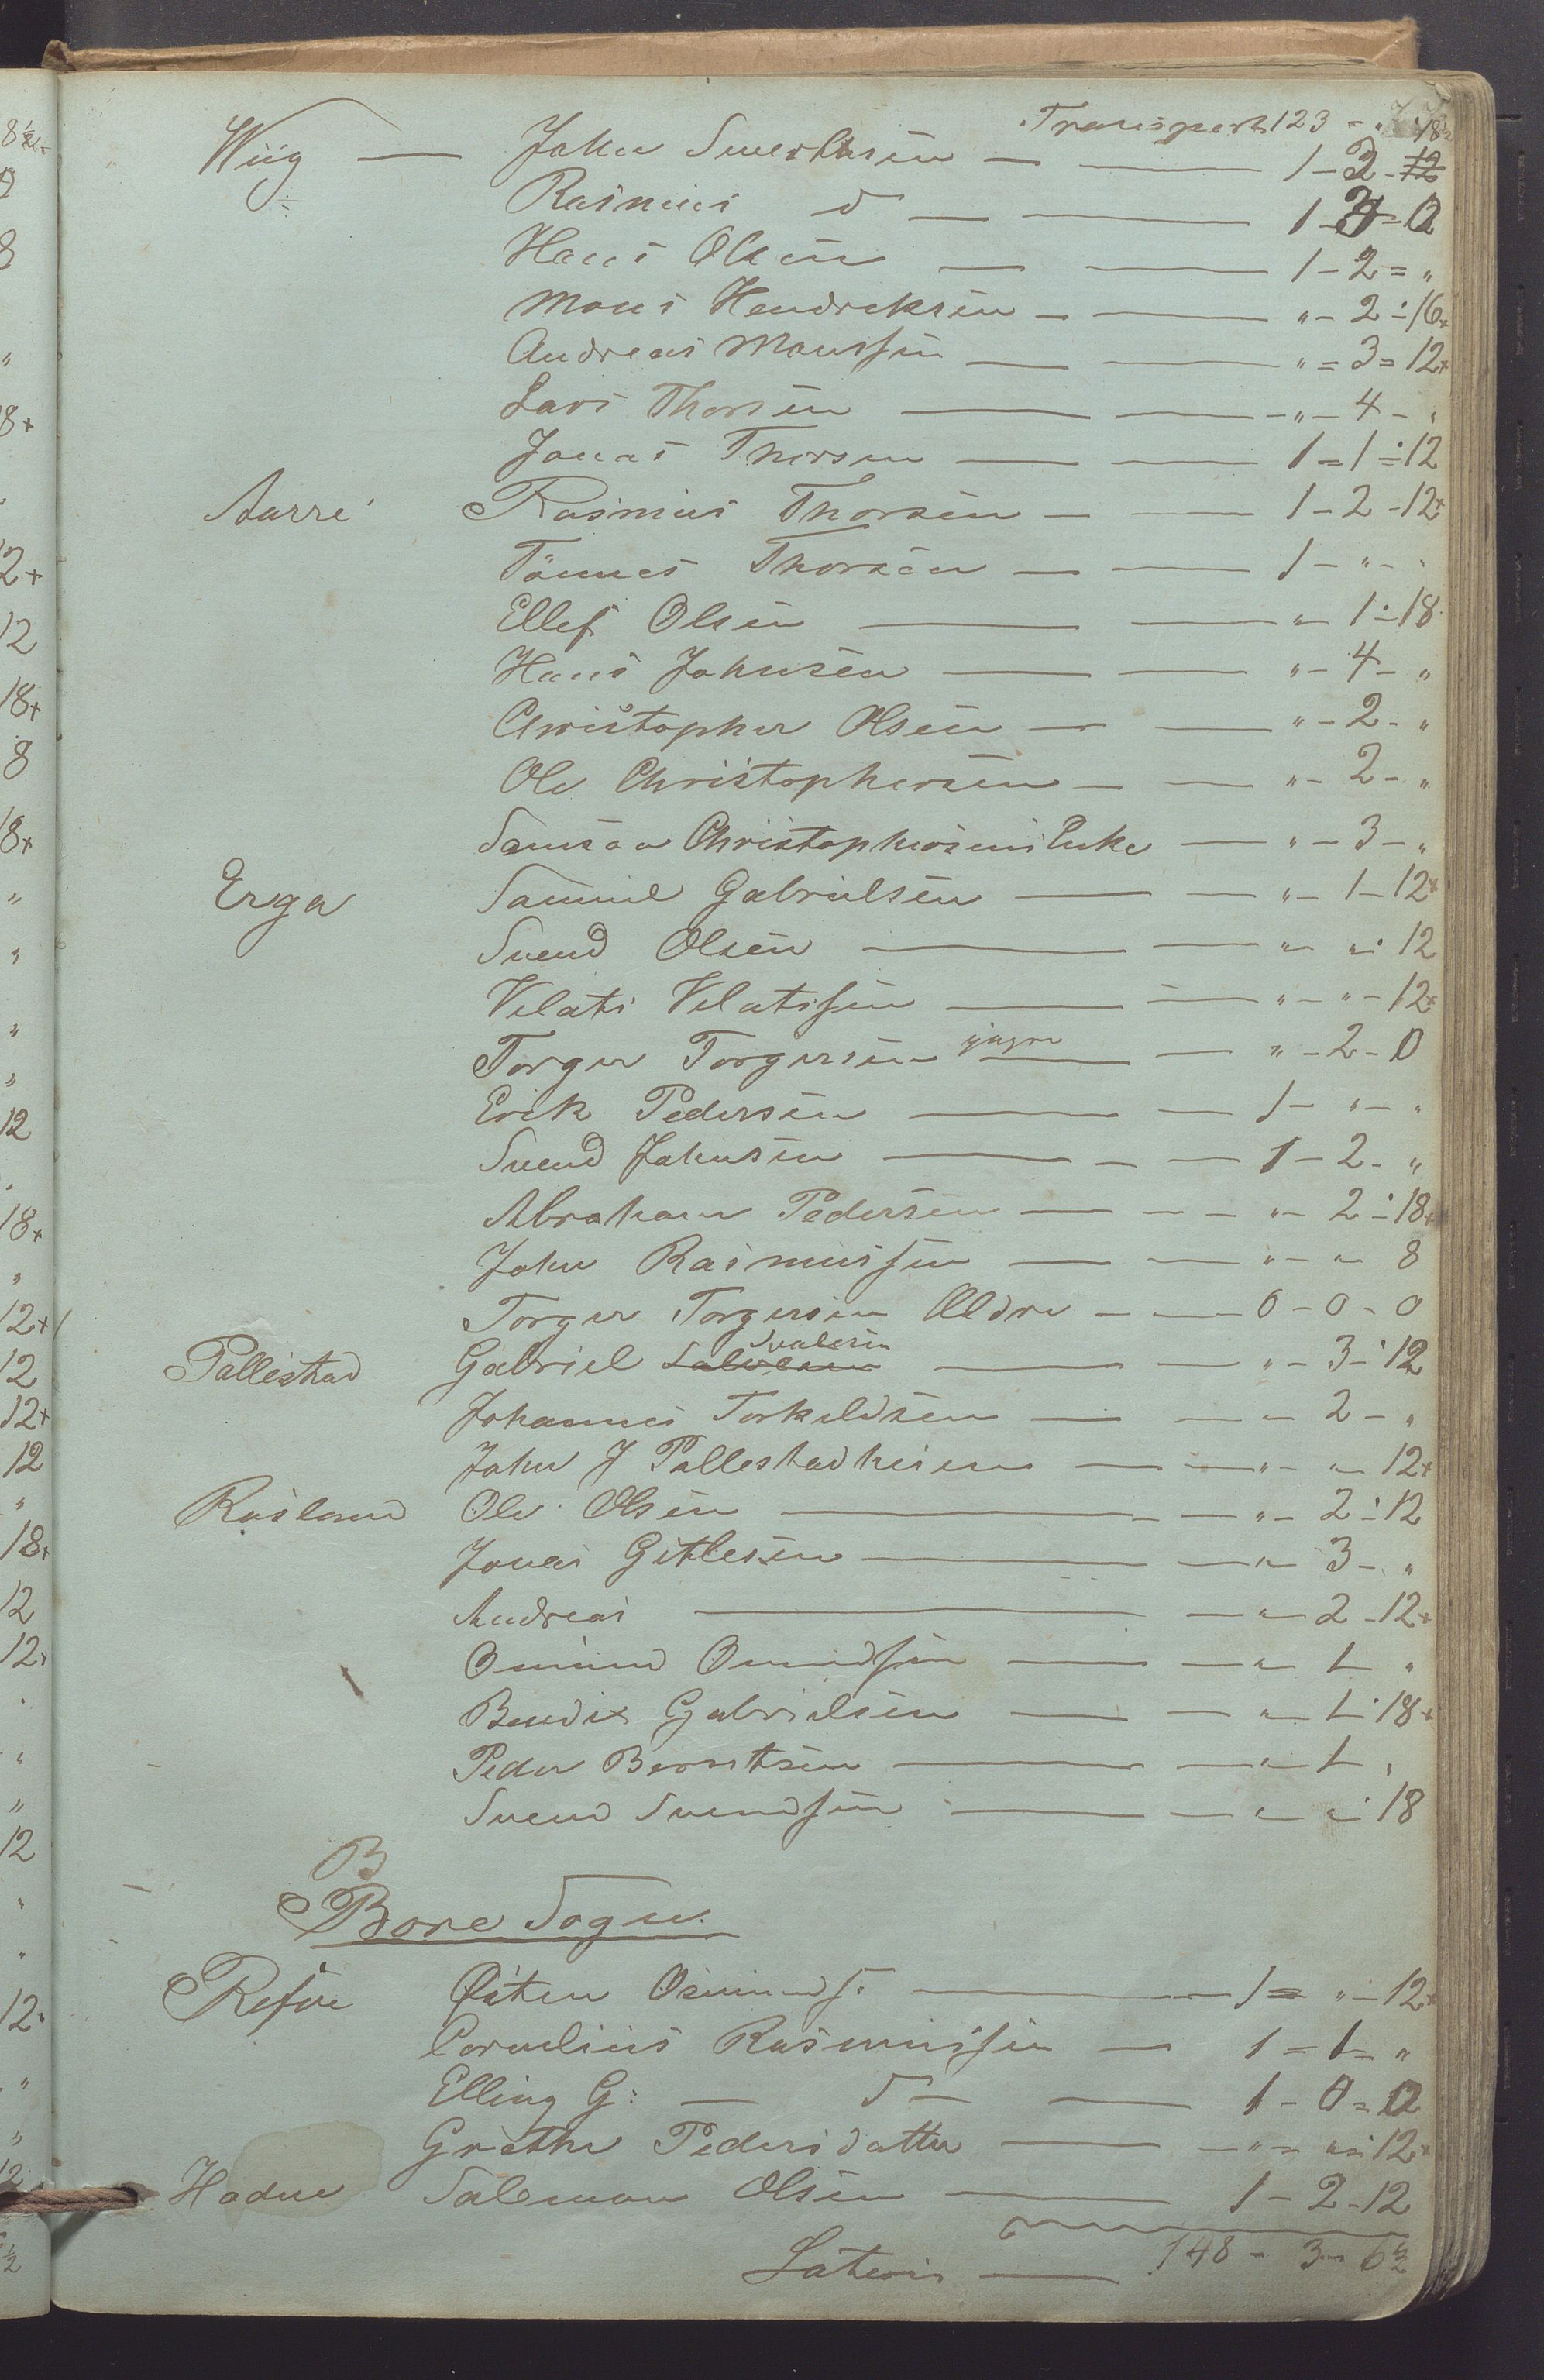 Transport 123 - " 18
Wiig — John Sivertsen — 1 - 3 - 12
Rasmus d — 1 - 3 - 0
Hans Olsen — 1 - 2 = "
Mons Hendreksen — " - 2 - 16+
Andreas Monssen — " = 3 = 12+
Lars Thorsen — " - 4 - "
Jonas Thorsen — 1 = 1 = 12
Aarre Rasmus Thorsen — 1 - 2 - 12+
Tönnes Thorsen — 1 - " - "
Ellef Olsen — " - 1 - 18
Hans Johnsen — " - 4 - "
Christopher Olsen — " - 2 - "
Ole Christophersen — " - 2 - "
Samson Christophersens Enke — " - 3 - "
Erga Samuel Gabrielsen — " - 1 - 12+
Svend Olsen — " - " - 12
Velats Velatssen — " - " - 12+
Torger Torgersen yngre — " - 2 - 0
Erik Pedersen — 1 - " - "
Svend Johnsen — 1 - 2 - "
Abraham Pedersen — " - 2 - 18+
John Rasmussen — " - " 8
Torger Torgersen Ældre — 0 - 0 - 0
Pallestad Gabriel Salvesen Svalesen — " - 3 - 12
Johannes Torkildsen — " 2 - "
John J Pallestadheien — " - " 12+
Rosland Ole Olsen — " - 2 - 12
Jonas Gitlesen — " 3 - "
Andreas — " 2 - 12+
Osmund Osmundsen — " 1 - "
Bendix Gabrielsen — " 1 - 18+
Peder Berntsen — " 1 - "
Svend Svendsen — " " 18
B
Bore Sogn.
Refve Østen Osmunds. — 1 = " - 12+
Cornelius Rasmussen — 1 = 1 - "
Elling G: — d — 1 - 0 = 0
Grethe Pedersdatter — " = " - 12+
Hodne Salemon Olsen — 1 - 2 - 12
Lateris — 148 - 3 - 6½